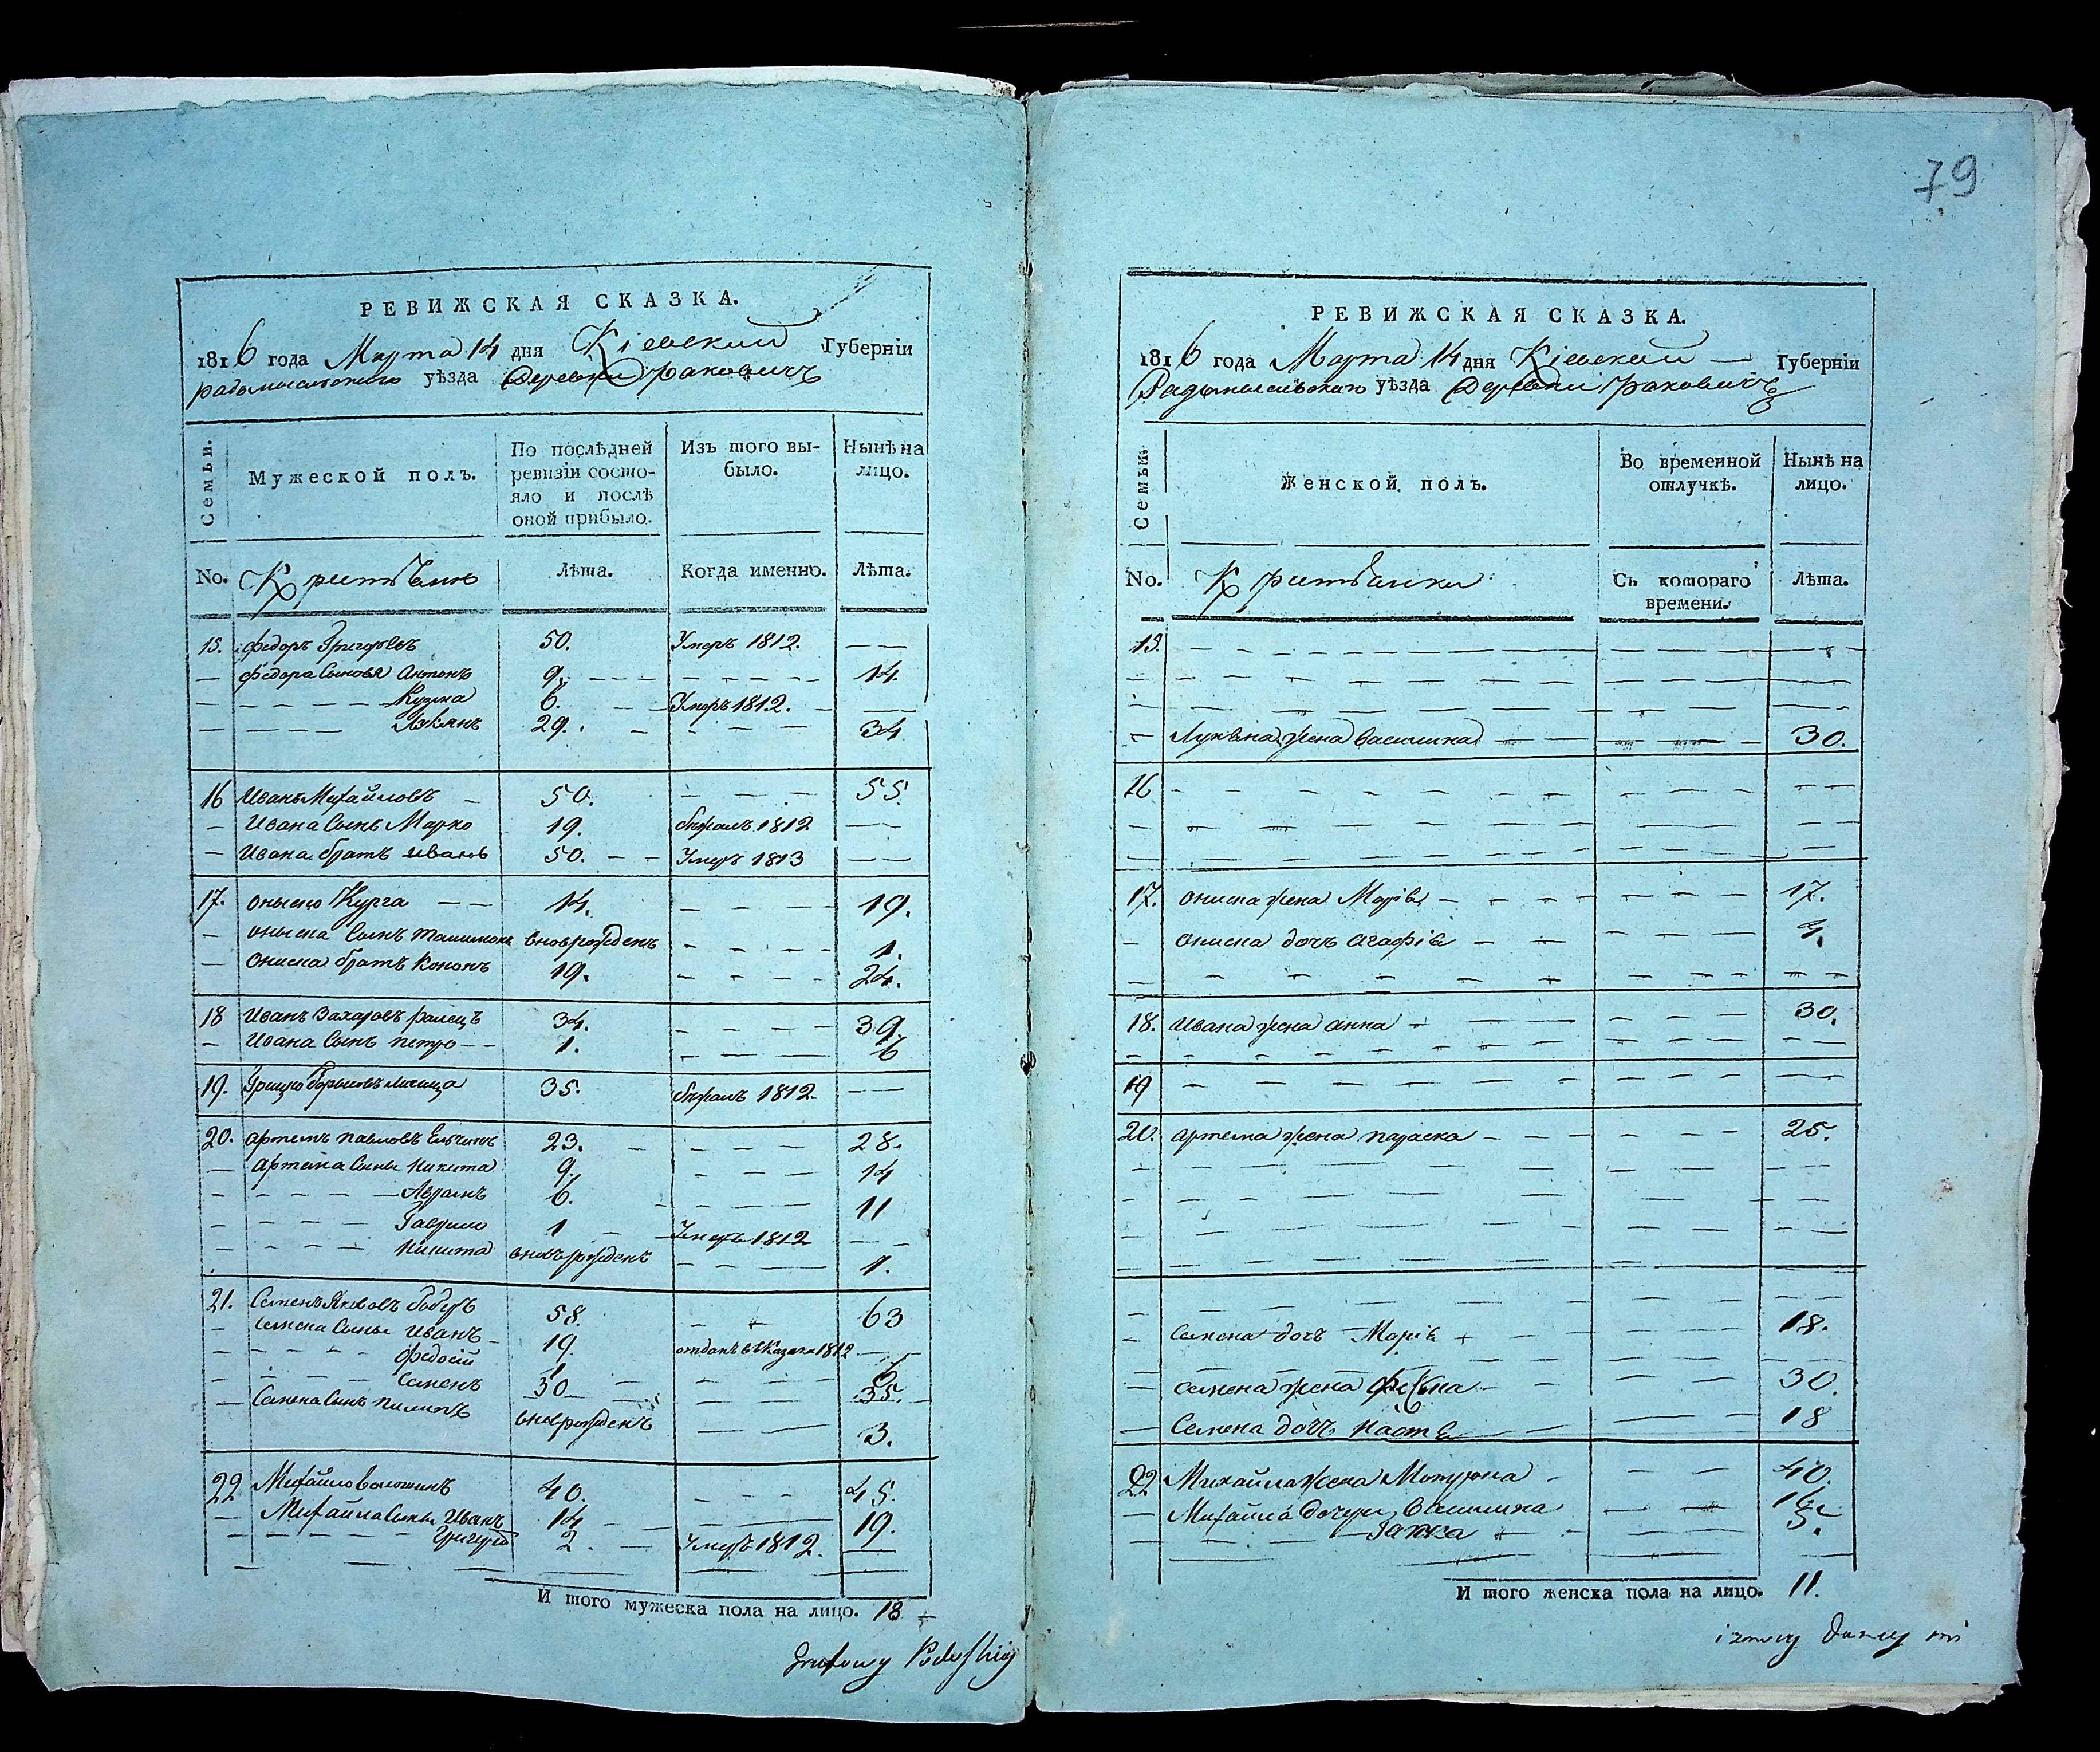 79
РЕВИЖСКАЯ СКАЗКА.
1816 года Марта 14 дня Кіевский Губерніи
радомысльского уѣзда Деревни Раковичъ
Семьи.
Мужеской полъ.
По послѣдней ревизіи состо-
яло и послѣ
оной прибыло.
Изъ того вы-
было.
Нынѣ на
лицо.
No. Крестьяне
Лѣта.
Когда именно.
Лѣта.
15. федоръ Григорьевъ 50. Умеръ 1812. — —
— федора Сыновья Антонъ 9. 14.
— Кузма 6. Умеръ 1812. —
— Лукянъ 29. 34
16 Иванъ Михайловъ — 50. 55.
— Ивана Сынъ Марко 19. бѣжалъ 1812 — —
— Ивана братъ иванъ 50. — — Умеръ 1813 — —
17. Онысько Курга — — 14. 19.
— Оныска Сынъ вновьрожденъ 1.
— Ониска братъ Кононъ 19. 24.
18 Иванъ Захаровъ 34. 39.
— Ивана Сынъ петро — — 1. 6
19. Грицко 35. бѣжалъ 1812. —
20. Артемъ павловъ 23. — 28.
— Артема Сыны Никита 9. 14
— Аврамъ 6. 11
— Гаврило 1 Умеръ 1812 — —
— Никита вновьрожденъ 1.
21. Семенъ Яковлевъ бобръ 58. 63
— Семена Сыны Иванъ — 19. отданъ въ Казаки 1812 —
— Федосій 1 6
— Семенъ 30 35.
— Семена Сынъ пилипъ вновьрожденъ 3.
22 Михайло 40. 45.
— Михайла Сыны Иванъ 14 19.
— Григорій 2. — Умеръ 1812. —
И того мужеска пола на лицо. 18
РЕВИЖСКАЯ СКАЗКА.
1816 года Марта 14 дня Кіевский — Губерніи
Радомысльского уѣзда Деревни Раковичъ
Семьи.
Женской полъ.
Во временной
отлучкѣ.
Нынѣ на
лицо.
No. Крестьянки
Съ котораго
времени.
Лѣта.
15.
— Лукьяна жена Василина 30.
16
17. Ониска жена Марія 17.
— Ониска дочь Агафія 1.
18. Ивана жена анна 30.
19
20. Артема жена параска 25.
— Семена дочь Марія 18.
— Семена жена 30.
— Семена дочь Настя 18
22 Михайла Жена Мотрона 40.
— Михайла дочери Василина 16
— Гапка 5.
И того женска пола на лицо. 11.